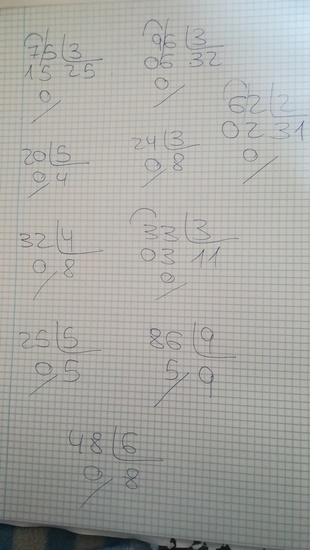 75 3
15 25
0
96 3
06 32
0
62 2
02 31
0
20 5
0 4
24 3
0 8
32 4
0 8
33 3
03 11
0
25 5
0 5
86 9
5 9
48 6
0 8